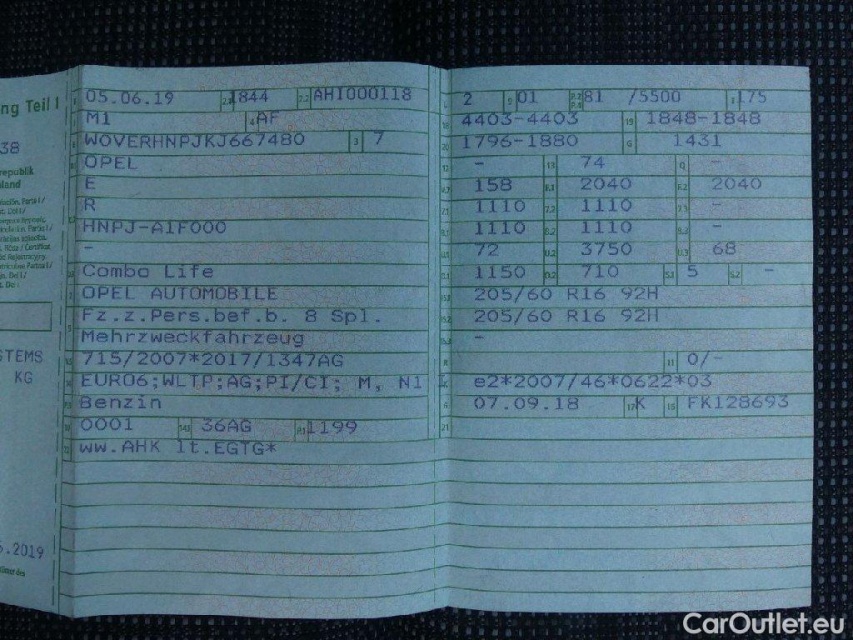 ng Teil I
38
republik
land
STEMS
KG
.2019
05.06.19 2.1 1844 2.2 AHI000118
M1 4 AF
W0VERHNPJKJ667480 3 7
OPEL
E
R
HNPJ-A1F000
-
Combo Life
OPEL AUTOMOBILE
Fz.z.Pers.bef.b. 8 Spl.
Mehrzweckfahrzeug
715/2007*2017/1347AG
EURO6;WLTP;AG;PI/CI; M, N1 I
Benzin
0001 14.1 36AG P.1 1199
ww.AHK lt.EGTG*
2 9 01 P.2 P.4 81 /5500 T 175
4403-4403 19 1848-1848
1796-1880 G 1431
- 13 74 Q -
158 F.1 2040 F.2 2040
1110 7.2 1110 7.3 -
1110 8.2 1110 8.3 -
72 U.2 3750 U.3 68
1150 O.2 710 S.1 5 S.2 -
205/60 R16 92H
205/60 R16 92H
-
11 0/-
e2*2007/46*0622*03
07.09.18 17 K 16 FK128693
21
CarOutlet.eu